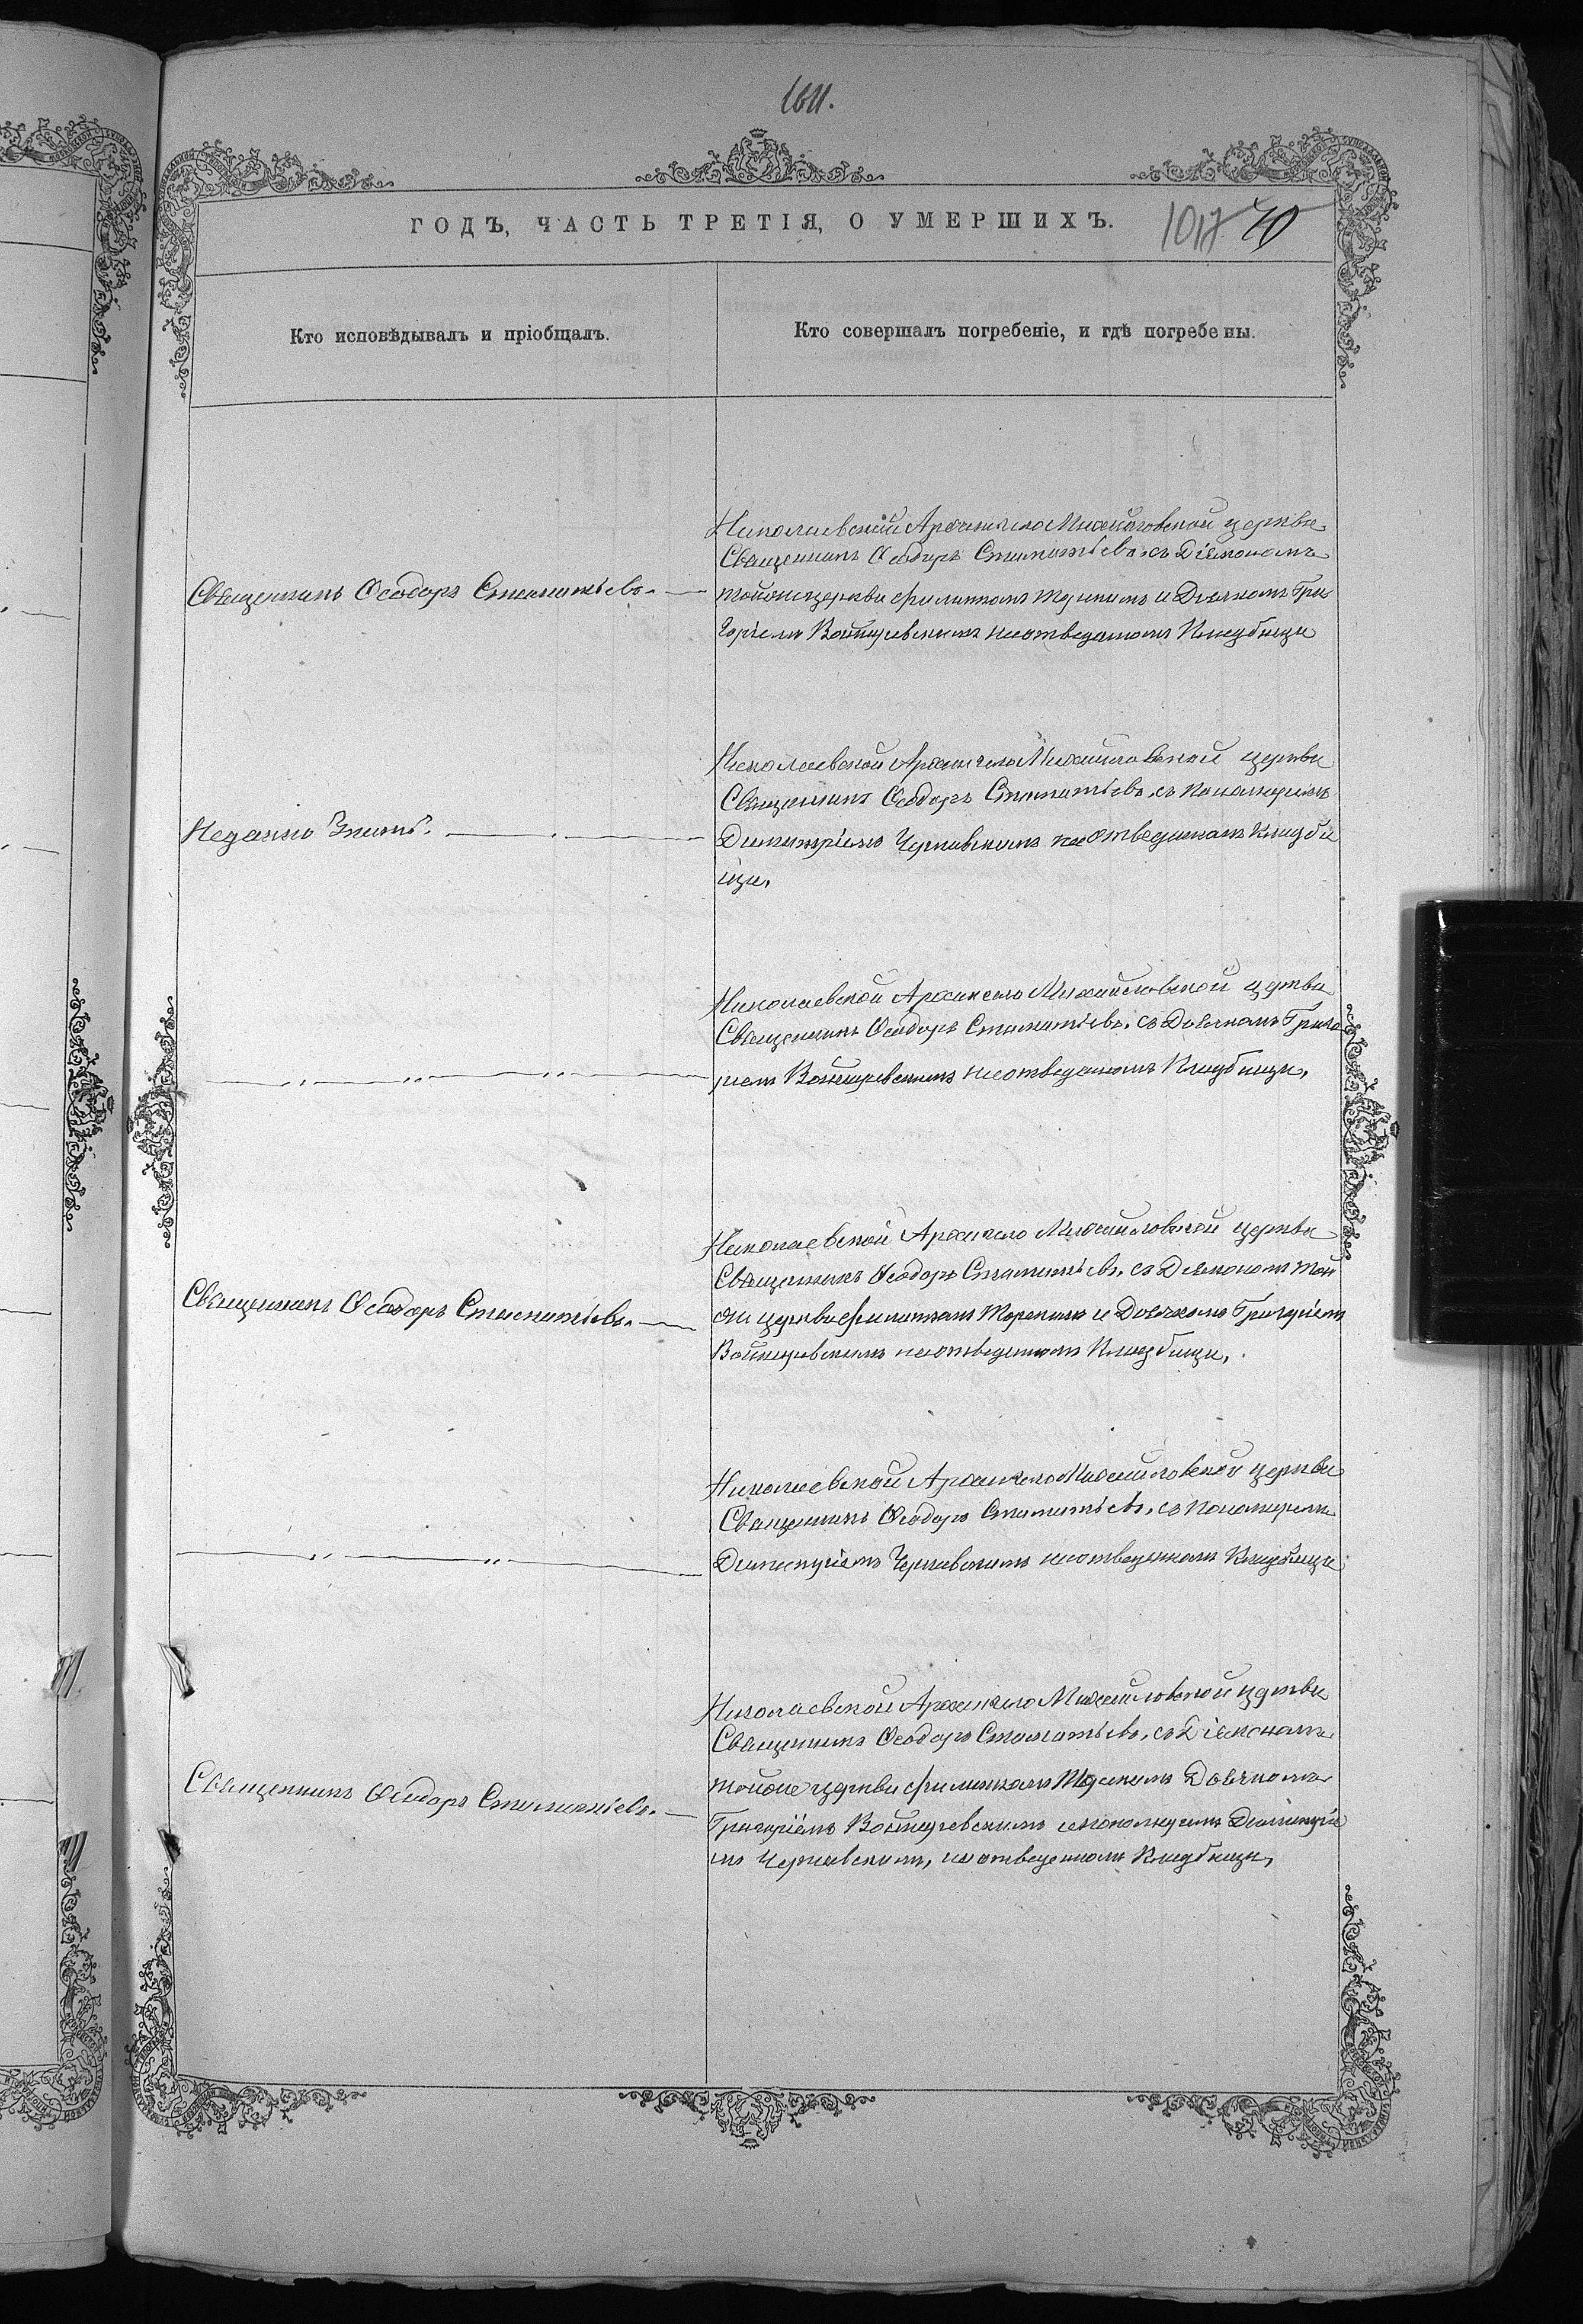 1611.
ГОДЪ, ЧАСТЬ ТРЕТІЯ, О УМЕРШИХЪ.
1017 70
Кто исповѣдывалъ и пріобщалъ.
Кто совершалъ погребеніе, и гдѣ погребены.
Священникъ Ѳеодоръ Стаматьевъ.
Николаевской Архангело Михайловской церкви
Священникъ Ѳеодоръ Стаматьевъ, съ Діакономъ
тойже церкви Филиппомъ и Дьячкомъ Гри
горіемъ Войтцевскимъ наотведеномъ Кладбищи
Неданно Знать.
Николаевской Архангело Михайловской церкви
Священникъ Ѳеодоръ Стаматьевъ, съ Пономаремъ
Димитріемъ Чернявскимъ на отведеномъ Кладби
щи,
" " "
Николаевской Архангело Михайловской церкви
Священникъ Ѳеодоръ Стаматьевъ, съ Дьячкомъ Григо
ріемъ Войтцевскимъ наотведеномъ Кладбищи,
Священникъ Ѳеодоръ Стаматьевъ.
Николаевской Архангело Михайловской церкви
Священникъ Ѳеодоръ Стаматьевъ, съ Діакономъ той
же церкви Филиппомъ и Дьячкомъ Григоріемъ
Войтцевскимъ наотведеномъ Кладбищи,
" "
Николаевской Архангело Михайловской церкви
Священникъ Ѳеодоръ Стаматьевъ, съ Пономаремъ
Димитріемъ Чернявскимъ наотведенномъ Кладбищи
Священникъ Ѳеодоръ Стаматьевъ.
Николаевской Архангело Михайловской церкви
Священникъ Ѳеодоръ Стаматьевъ, съ Діакономъ
тойже церкви Филиппомъ Дьячкомъ
Григоріемъ Войтцевскимъ ипономаремъ Димитріе
мъ Чернявскимъ, наотведенномъ Кладбищи,